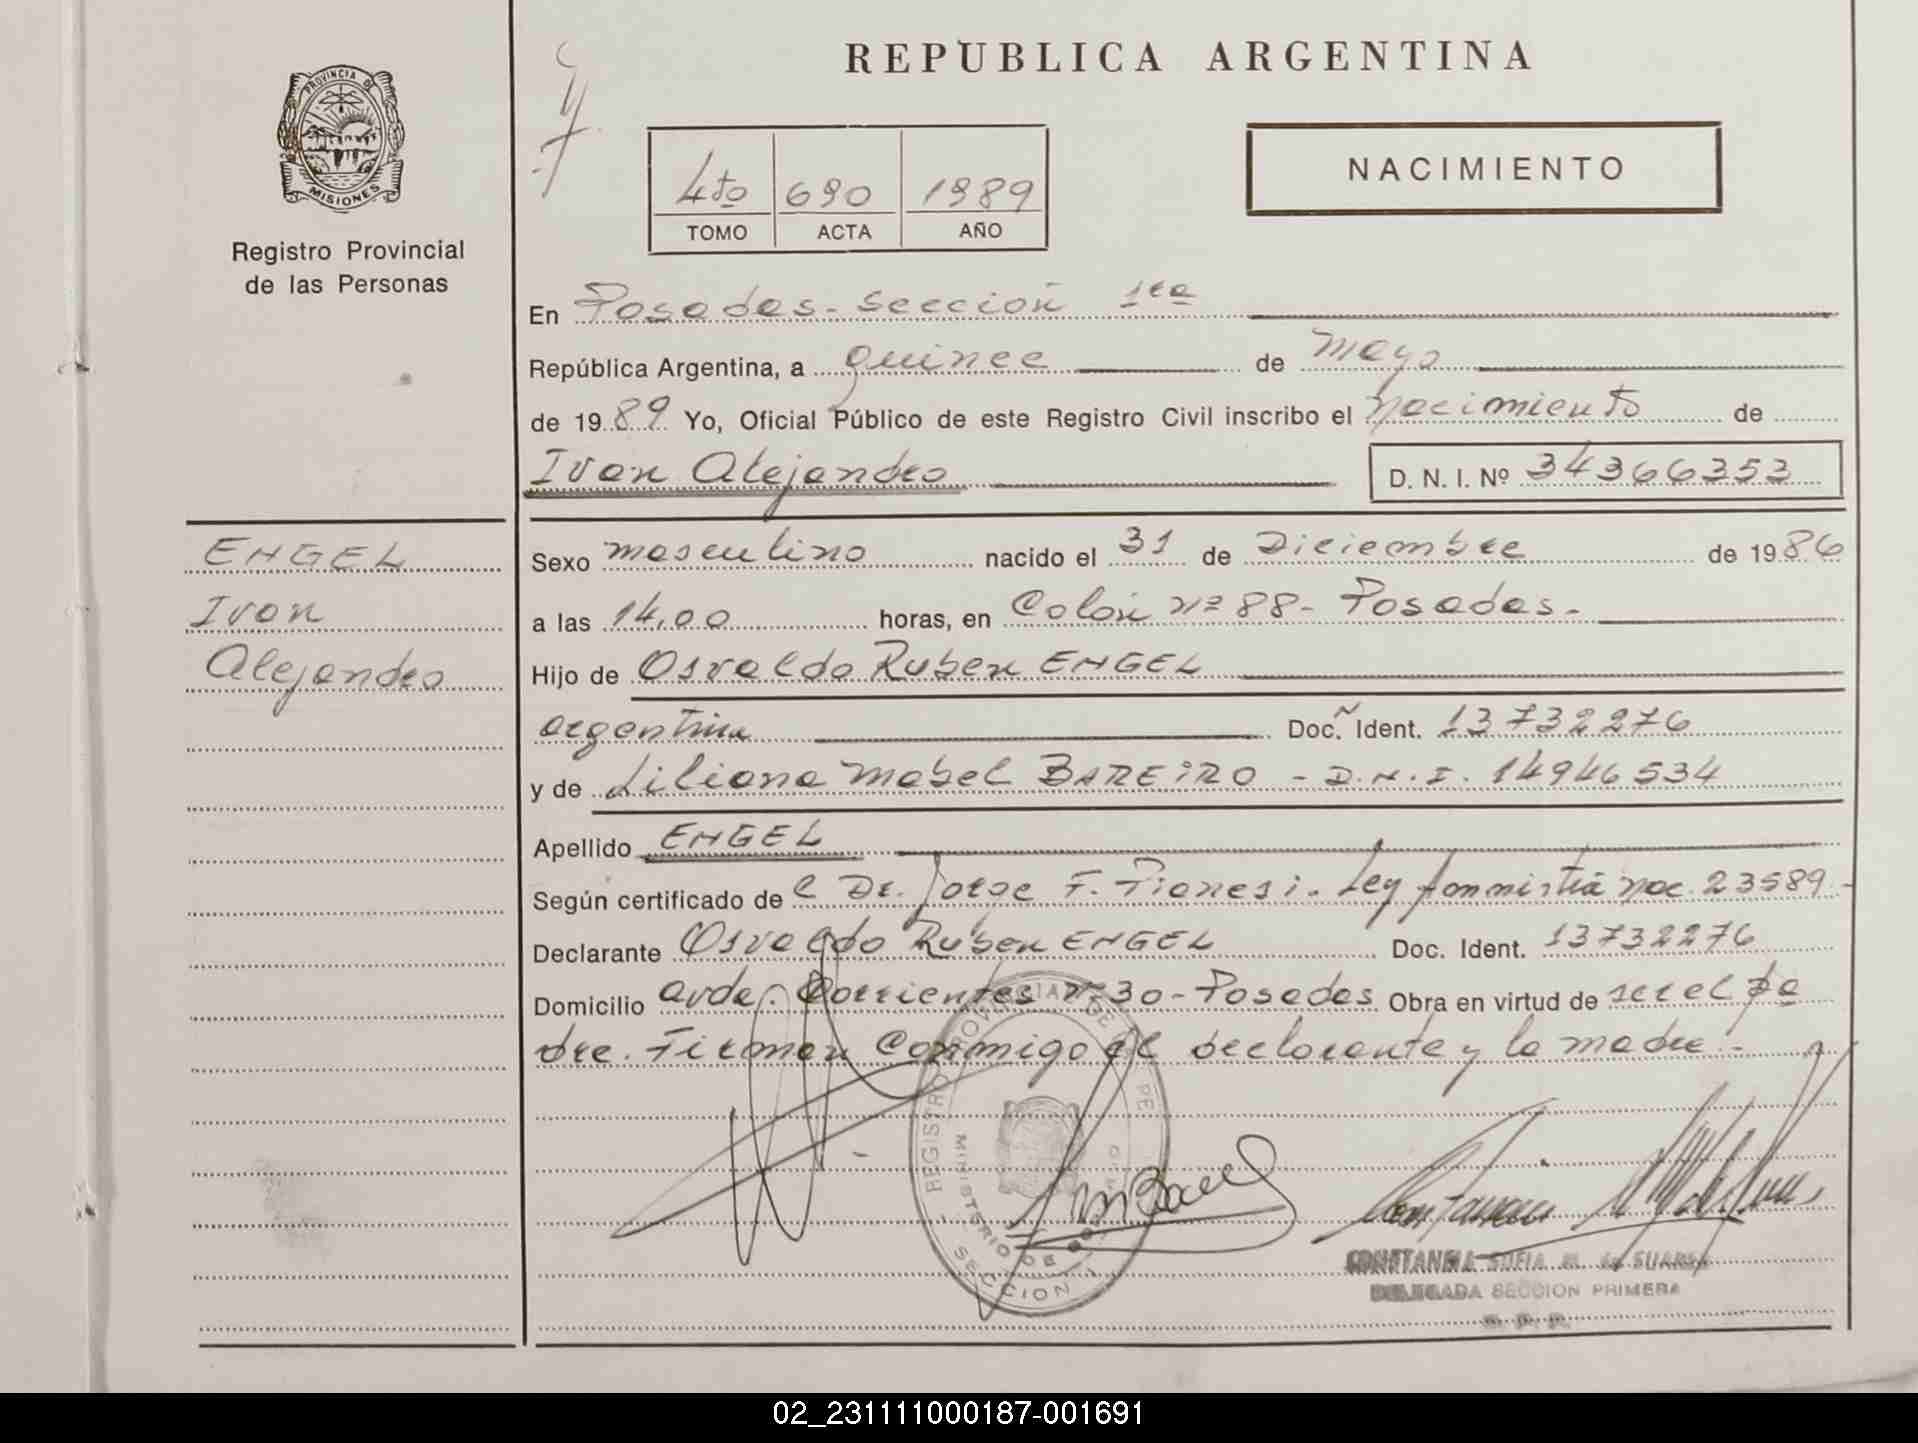 REPUBLICA ARGENTINA
PROVINCIA DE
MISIONES
Registro Provincial
de las Personas
4to 690 1989
TOMO ACTA AÑO
NACIMIENTO
En Posadas - Sección 1ra
República Argentina, a quince de mayo
de 1989 Yo, Oficial Público de este Registro Civil inscribo el nacimiento de
Ivan Alejandro D. N. I. Nº 34366353
ENGEL
Ivan
Alejandro
Sexo masculino nacido el 31 de Diciembre de 1986
a las 14,00 horas, en Colón nº 88 - Posadas -
Hijo de Osvaldo Ruben ENGEL
argentina Doc. Ident. 13732276
y de Liliana Mabel BAREIRO - D.N.I. 14946534
Apellido ENGEL
Según certificado de l Dr. Jorge F. Pianesi - Ley Ammistia nac. 23589 -
Declarante Osvaldo Ruben ENGEL Doc. Ident. 13732276
Domicilio avda. Corrientes nº 30 - Posadas Obra en virtud de ser el pa
dre. Firman conmigo el declarante y la madre. -
REGISTRO PROVINCIAL DE
MINISTERIO DE
SECCION 1
CONSTANCIA SOFIA M. de SUAREZ
DELEGADA SECCION PRIMERA
02_231111000187-001691